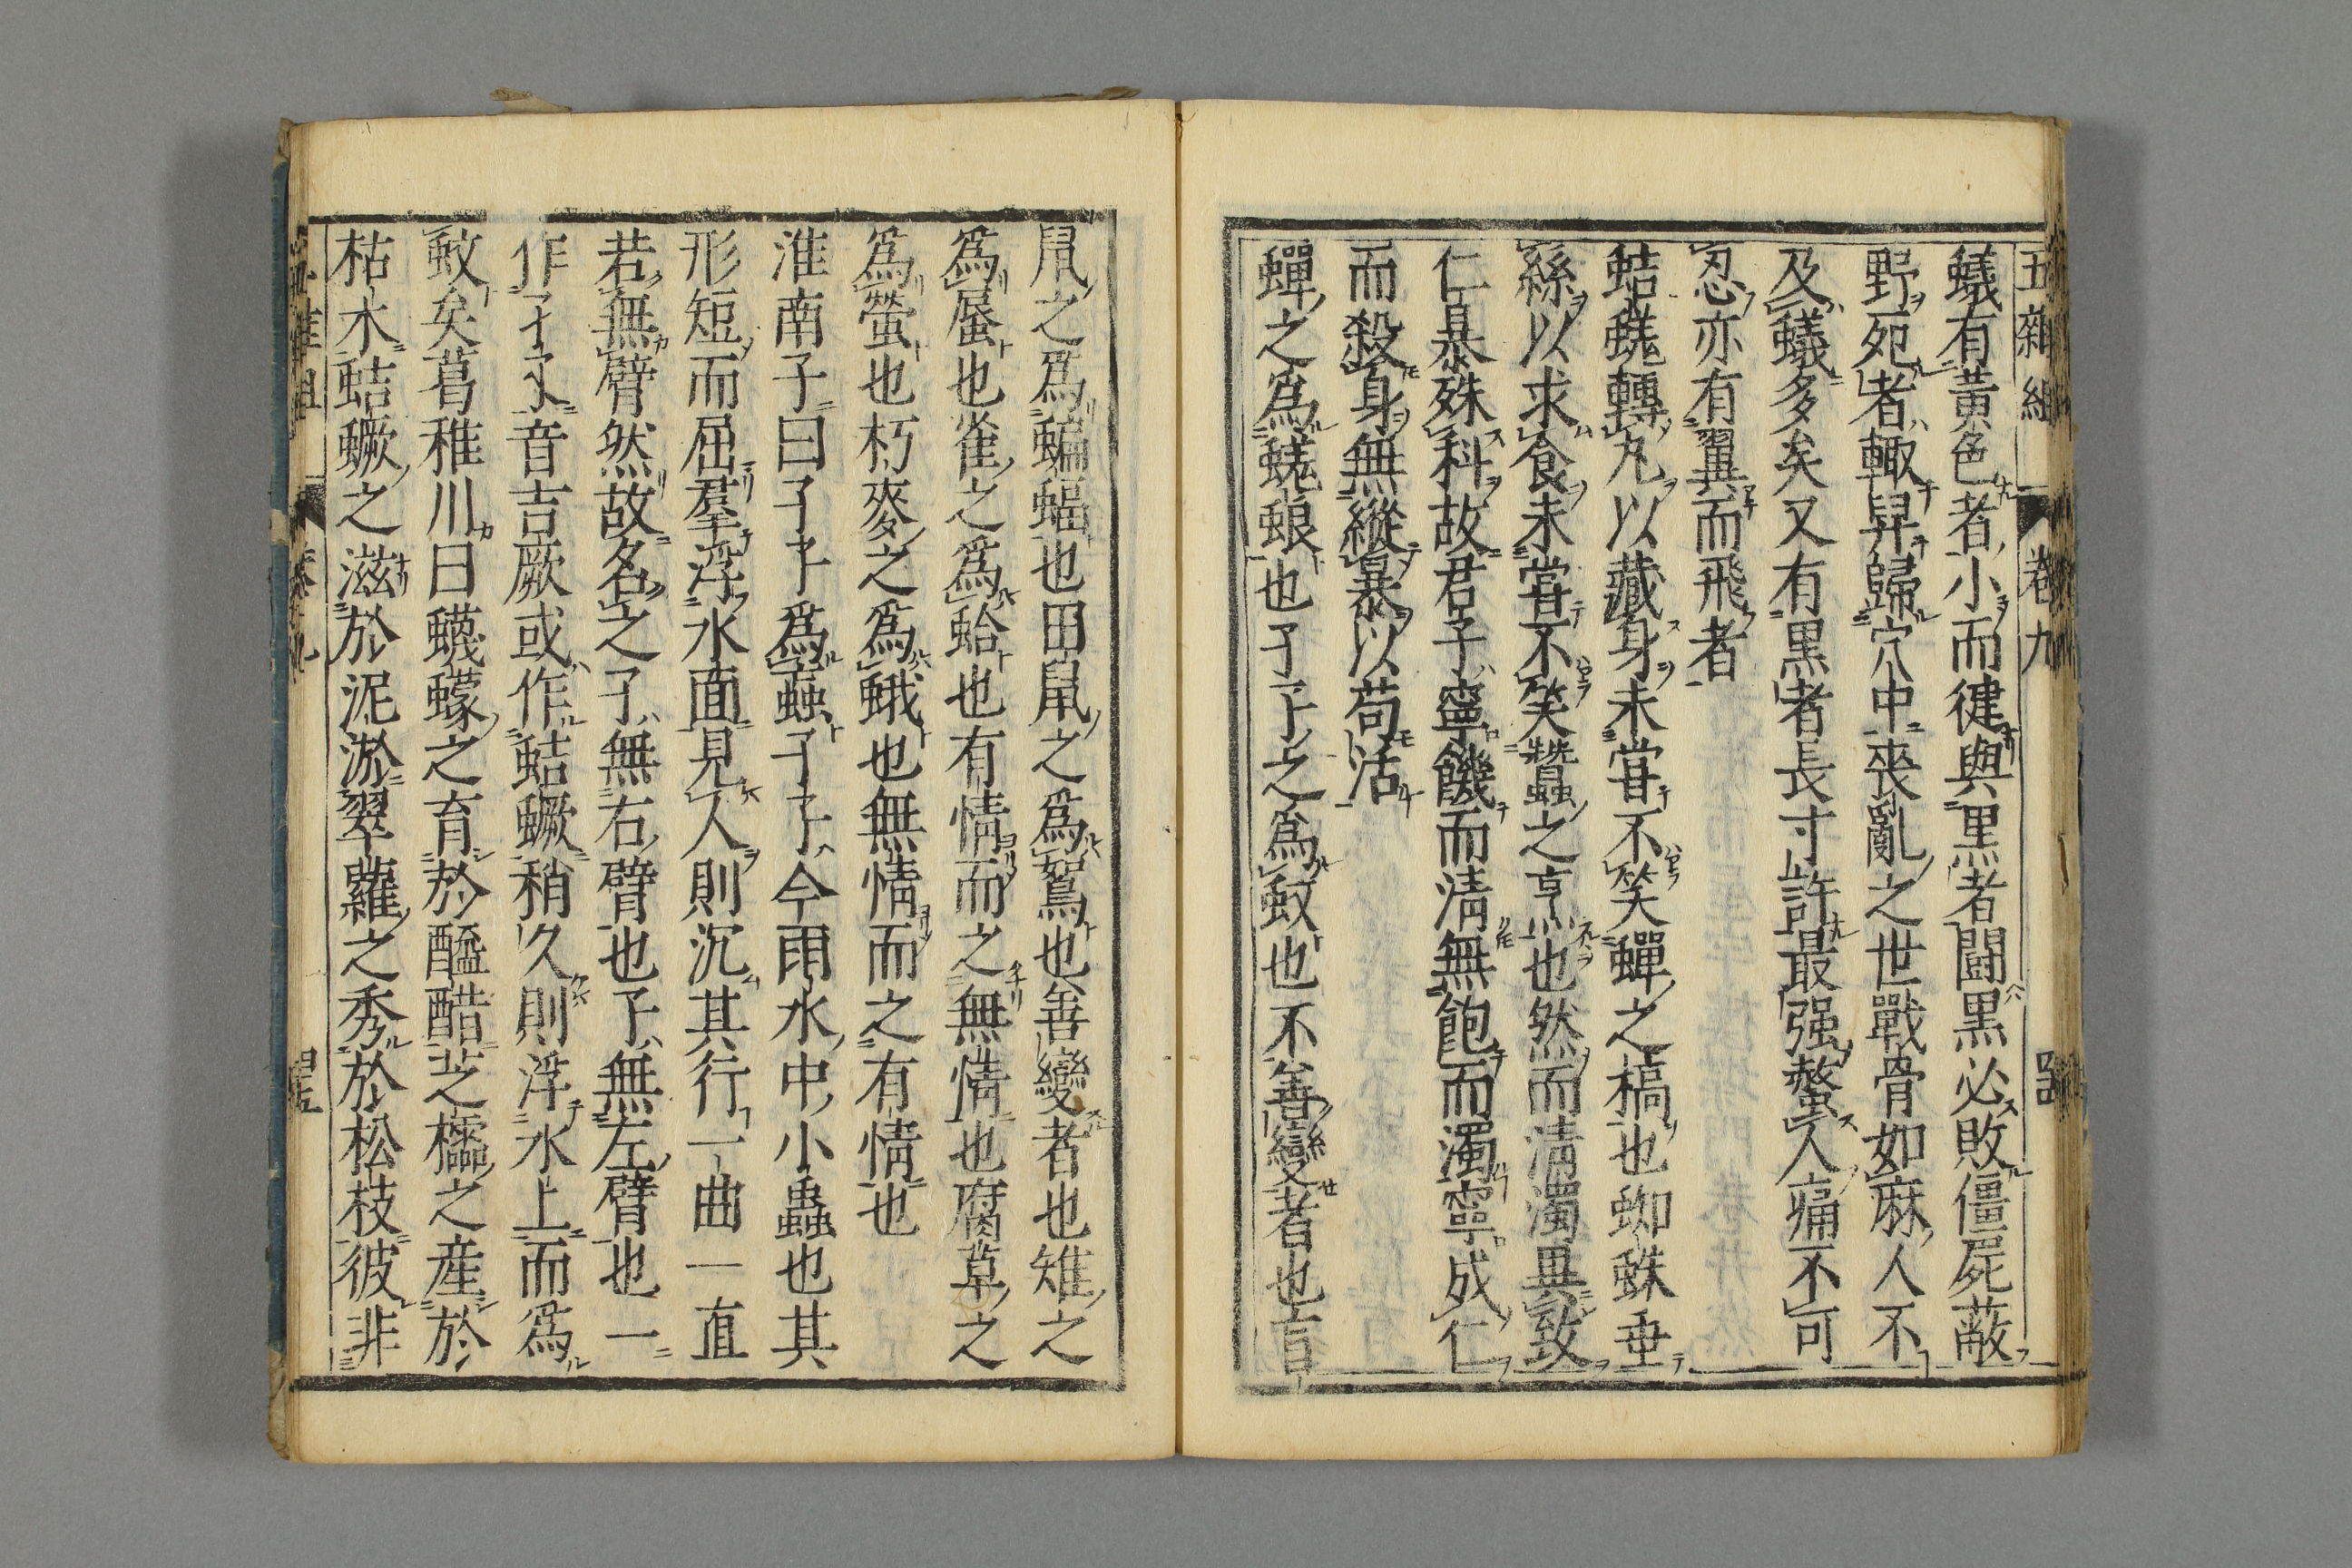 五雜組 卷九
蟻有黃色者小而健與黒者鬪黒必敗僵屍蔽
野死者輙舁歸穴中喪亂之世戰骨如麻人不
及蟻多矣又有黒者長寸許最强螫人痛不可
忍亦有翼而飛者
蛣蜣轉丸以藏身未甞不笑蟬之槁也蜘蛛垂
絲以求食未甞不笑蠶之烹也然而清濁異致
仁暴殊科故君子寧饑而清無飽而濁寧成仁
而殺身無縱暴以苟活
蟬之爲蜣蜋也孑孓之爲蚊也不善變者也盲
鼠之爲蝙蝠也田鼠之爲鴽也善變者也雉之
爲蜃也雀之爲蛤也有情而之無情也腐草之
爲螢也朽麥之爲蛾也無情而之有情也
淮南子曰孑孓爲蝱孑孓今雨水中小蟲也其
形短而屈羣浮水面見人則沉其行一曲一直
若無臂然故名之孑無右臂也孓無左臂也一
作孑孓音吉厥或作蛣蟩稍久則浮水上而爲
蚊矣葛稚川曰蠛蠓之育於醯醋芝櫺之産於
枯木蛣蟩之滋於泥淤翠蘿之秀於松枝彼非